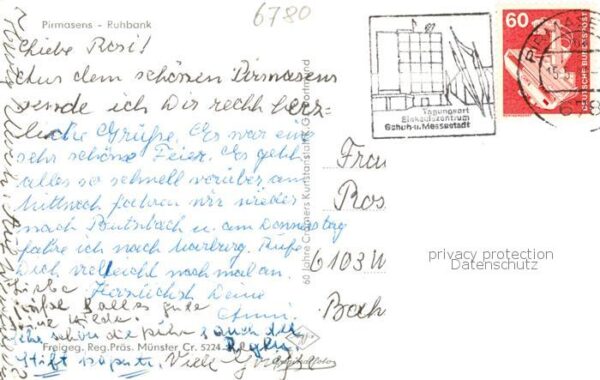 Pirmasens - Ruhbank
6780
Liebe Rosi!
Aus dem schönen Pirmasens
sende ich Dir recht herz-
liche Grüße. Es war eine
sehr schöne Feier. Es geht
alles so schnell vorüber am
Mittwoch fahren wir wieder
nach Butzbach u. am Donnerstag
fahre ich nach Marburg. Rufe
Dich vielleicht nochmal an.
Herzlichst Deine
Anni.
Liebe
Grüße & alles gute
sehr schön die
auch die
Stift Viele Grüße
Freigeg. Reg.Präs. Münster Cr. 5224
60 Jahre Cramers Kunstanstalt KG Dortmund
Tagungsort
Einkaufszentrum
Schuh-u.Messestadt
60
DEUTSCHE BUNDESPOST
Frau
Ros
6103 W
Bah
privacy protection
Datenschutz